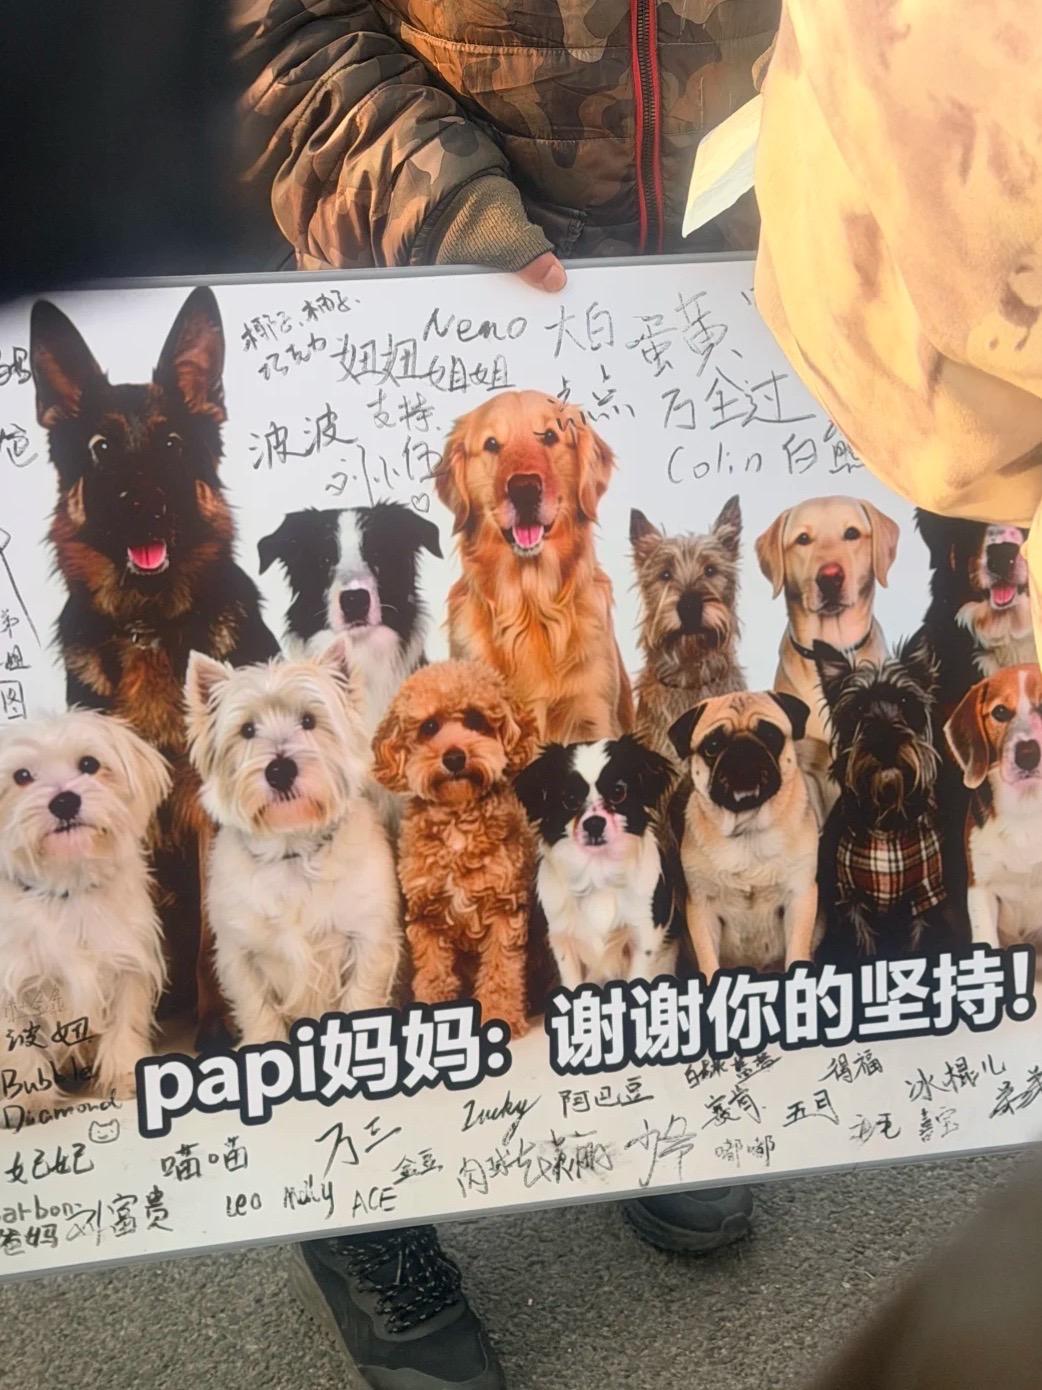 椰子、柚子、
巧克力
妞妞
Nemo
姐姐
大白
蛋黄
点点
万全过
Colin 白熊
波波
支持
刘小伍
爸
弟
姐
图
papi妈妈：谢谢你的坚持！
波妞
Bubble
Diamond
妃妃
喵喵
万三
金豆
Lucky
阿巴豆
肉球
少爷
五月
得福
冰棍儿
嘟嘟
喜宝
爸妈
刘富贵
Leo
Molly
ACE